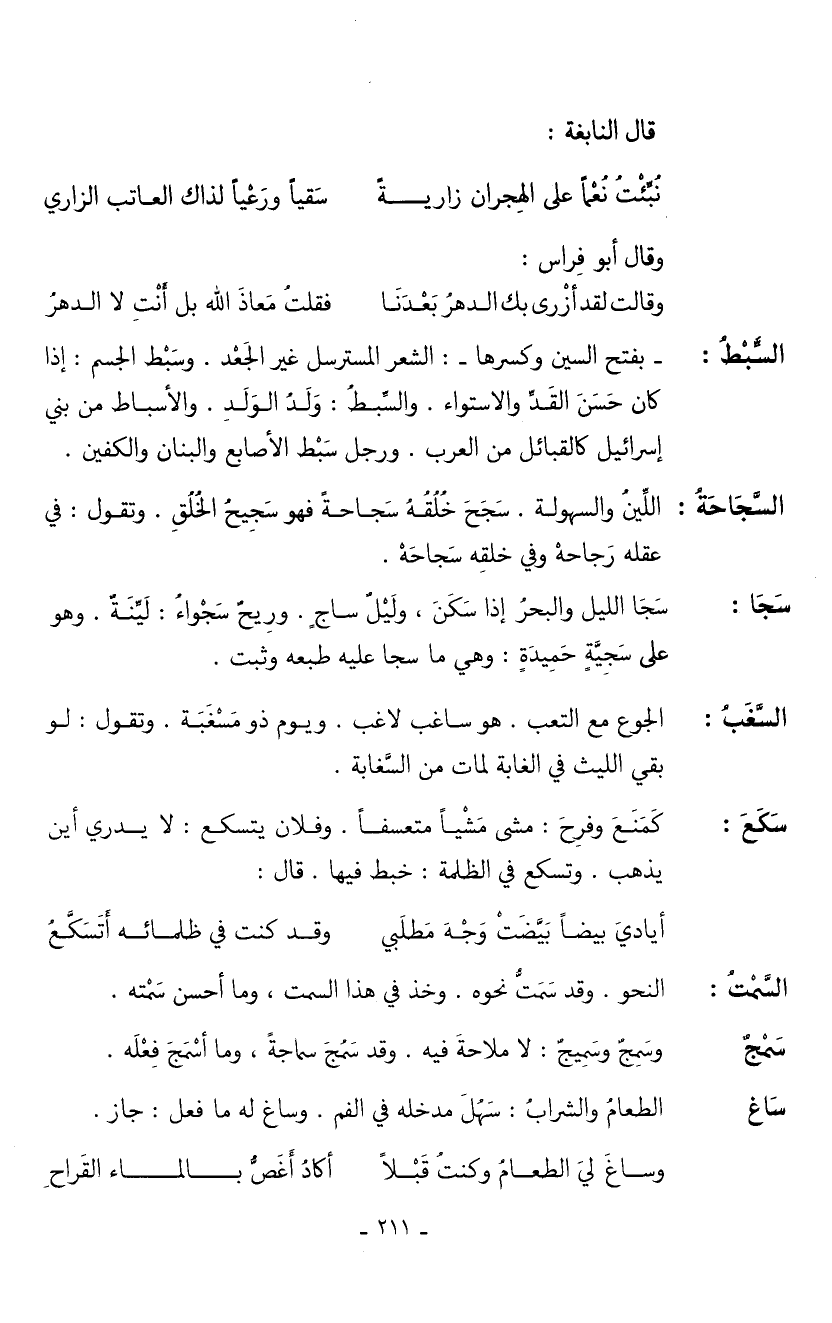 قال النابغة :
نُبِّئْتُ نُعْماً على الهِجران زاريـــــةً سَقياً ورَعْياً لذاك العـاتب الزاري
وقال أبو فِراس :
وقالت لقد أزْرى بك الـدهرُ بَعْـدَنَـا فقلتُ مَعاذَ الله بل أَنْتِ لا الـدهرُ
السَّبْطُ : - بفتح السين وكسرها - : الشعر المسترسل غير الجَعْد . وسَبْط الجسم : إذا
كان حَسَنَ القَـدِّ والاستواء . والسِّبـطُ : وَلَـدُ الـوَلَـدِ . والأسبـاط من بني
إسرائيل كالقبائل من العرب . ورجل سَبْط الأصابع والبنان والكفين .
السَّجَاحَةُ : اللِّينُ والسهولـة . سَجَحَ خُلُقُـهُ سَجـاحـةً فهو سَجِيحُ الخُلُقِ . وتقول : في
عقله رَجاحهْ وفي خلقه سَجاحَهْ .
سَجَا : سَجَا الليل والبحرُ إذا سَكَنَ ، ولَيْلٌ سـاجٍ . وريحٌ سَجْواءُ : لَيِّنَـةٌ . وهو
على سَجِيَّةٍ حَمِيدَةٍ : وهي ما سجا عليه طبعه وثبت .
السَّغَبُ : الجوع مع التعب . هو سـاغب لاغب . ويـوم ذو مَسْغَبَـة . وتقول : لـو
بقي الليث في الغابة لمات من السَّغابة .
سَكَعَ : كَمَنَـعَ وفرِحَ : مشى مَشْيـاً متعسفـاً . وفـلان يتسكـع : لا يـدري أين
يذهب . وتسكع في الظلمة : خبط فيها . قال :
أياديَ بيضـاً بَيَّضَتْ وَجْـهَ مَطلَبي وقـد كنت في ظلمـائـه أَتَسَكَّـعُ
السَّمْتُ : النحو . وقد سَمَتُّ نحوه . وخذ في هذا السمت ، وما أحسن سَمْته .
سَمْجٌ وسَمِجٌ وسَمِيجٌ : لا ملاحةَ فيه . وقد سَمُجَ سماجةً ، وما أسْمَجَ فِعْلَه .
سَاغ الطعامُ والشرابُ : سَهُلَ مدخله في الفم . وساغ له ما فعل : جاز .
وسـاغَ ليَ الطعـامُ وكنتُ قَبْـلاً أكادُ أَغَصُّ بـــالمــــاء القَراحِ
- ٢١١ -